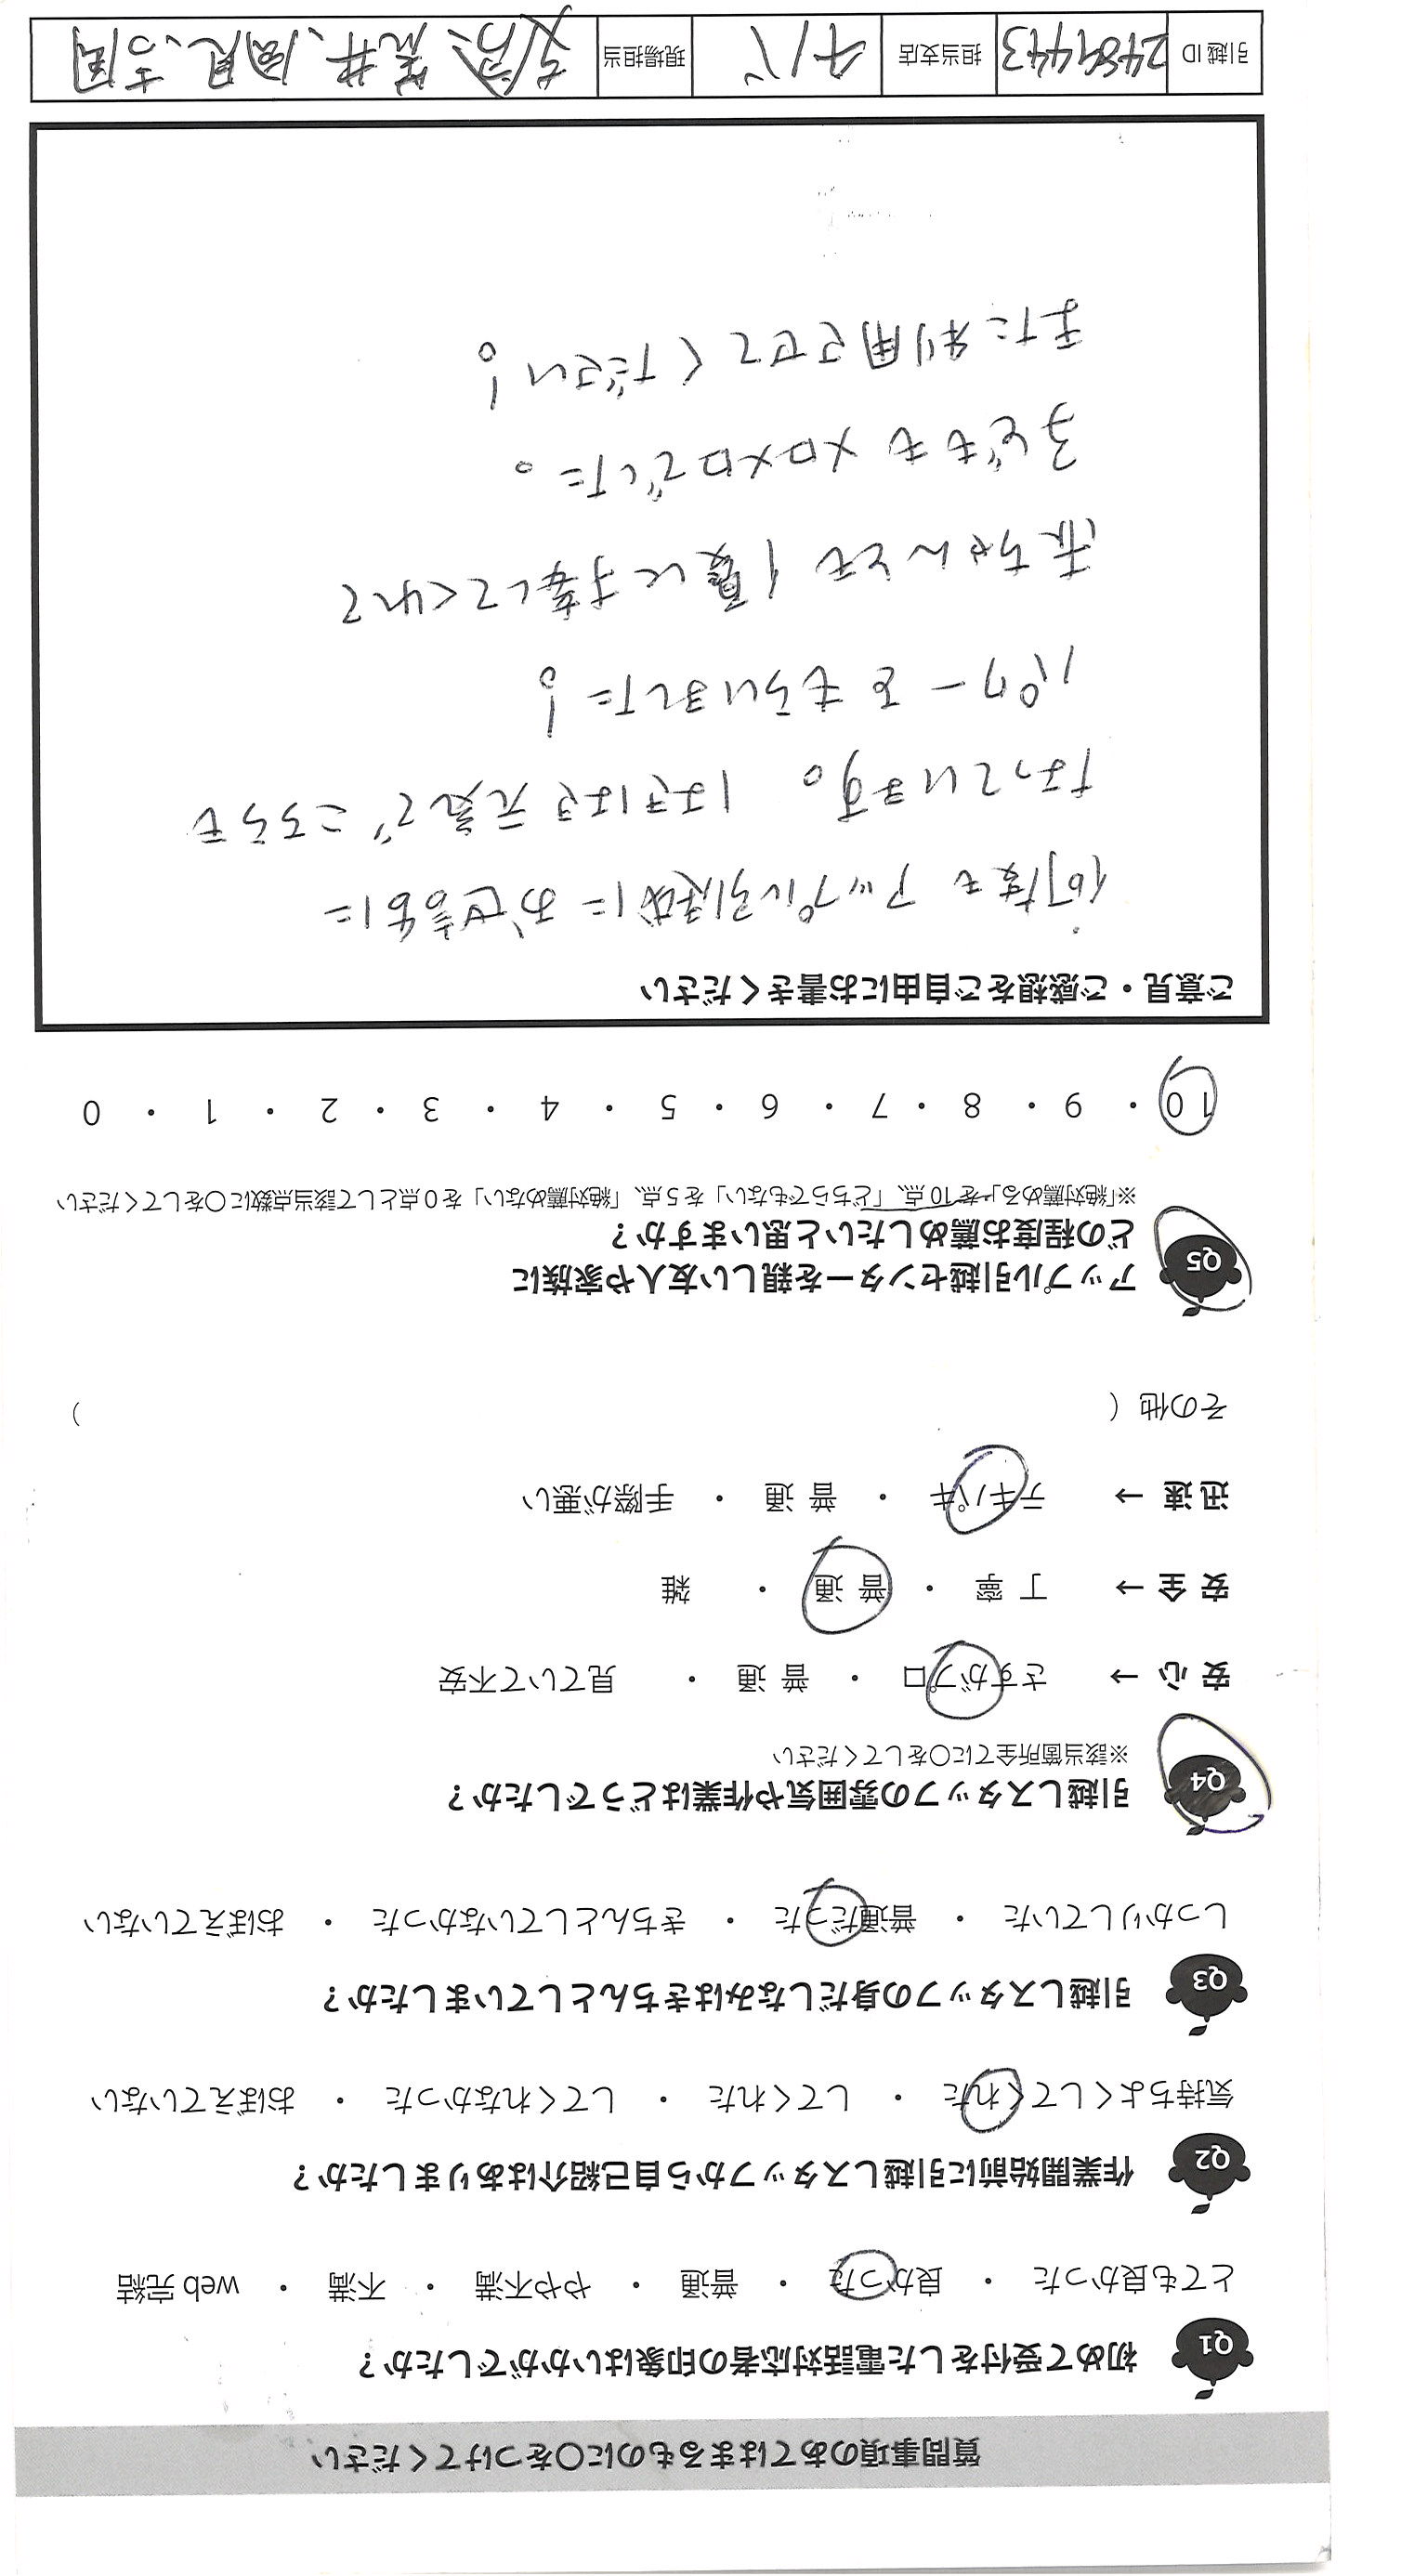 質問事項のあてはまるものに○をつけてください
Q1 初めて受付をした電話対応者の印象はいかがでしたか？
とても良かった ・ 良かった ・ 普通 ・ やや不満 ・ 不満 ・ web 完結
Q2 作業開始前に引越しスタッフから自己紹介はありましたか？
気持ちよくしてくれた ・ してくれた ・ してくれなかった ・ おぼえていない
Q3 引越しスタッフの身だしなみはきちんとしていましたか？
しっかりしていた ・ 普通だった ・ きちんとしていなかった ・ おぼえていない
Q4 引越しスタッフの雰囲気や作業はどうでしたか？
※該当箇所全てに○をしてください
安心 → さすがプロ ・ 普通 ・ 見ていて不安
安全 → 丁寧 ・ 普通 ・ 雑
迅速 → テキパキ ・ 普通 ・ 手際が悪い
その他（ ）
Q5 アップル引越センターを親しい友人や家族に
どの程度お薦めしたいと思いますか？
※「絶対薦める」を10点、「どちらでもない」を5点、「絶対薦めない」を0点として該当点数に○をしてください
10 ・ 9 ・ 8 ・ 7 ・ 6 ・ 5 ・ 4 ・ 3 ・ 2 ・ 1 ・ 0
ご意見・ご感想をご自由にお書きください
何度も アップル引越に お世話に
なっています。 はきはき元気で こちらも
パワーを もらいました！
赤ちゃんとも 優しく接してくれて
子どもも メロメロでした。
また利用させてください！
引越ID 2489443 担当支店 チバ 現場担当 荒井、高見、吉岡